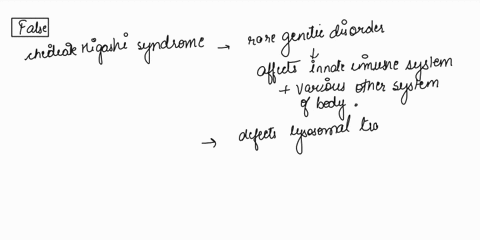 False
chediak Higashi syndrome → rare genetic disorder
↓
affects innate immune system
+ various other system
of body.
→ defects lysosomal tra